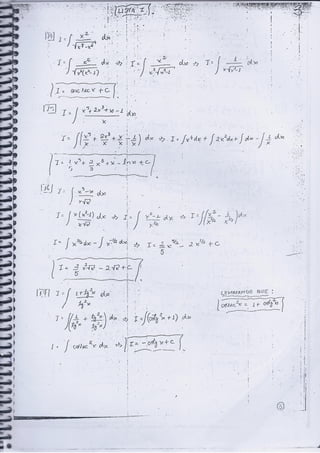 LISTA I
I = ∫ x² / √(x⁷ - x⁴) dx
I = ∫ x² / √(x⁴(x²-1)) dx ⇒ I = ∫ x² / (x³√(x²-1)) dx ⇒ I = ∫ 1 / (x√(x²-1)) dx
I = arc sec x + C
15 I = ∫ (x⁵ + 2x³ + x - 1) / x dx
I = ∫ (x⁵/x + 2x³/x + x/x - 1/x) dx ⇒ I = ∫x⁴dx + ∫2x²dx + ∫dx - ∫ 1/x dx
I = 1/5 x⁵ + 2/3 x³ + x - ln x + C
16 I = ∫ (x³ - x) / (x√x) dx
I = ∫ x(x²-1) / (x√x) dx ⇒ I = ∫ (x² - 1) / x^½ dx ⇒ I = ∫ (x²/x^½ - 1/x^½) dx
I = ∫ x^3/2 dx - ∫ x^-½ dx ⇒ I = 2/5 x^5/2 - 2 x^½ + C
I = 2/5 x²√x - 2√x + C
17 I = ∫ (1 + tg²x) / tg²x dx
LEMBRANDO QUE :
I = ∫ (1/tg²x + tg²x/tg²x) dx ⇒ I = ∫ (cotg²x + 1) dx
cossec²x = 1 + cotg²x
I = ∫ cossec²x dx ⇒ I = - cotg x + C